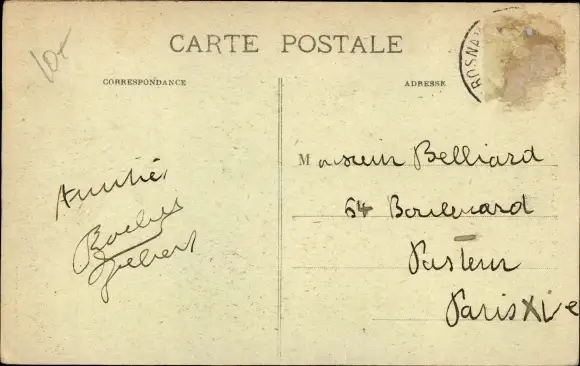 10+
CARTE POSTALE
ROSNA
CORRESPONDANCE
ADRESSE
Monsieur Belliard
64 Boulevard
Pasteur
Paris XVe
Amitiés
Gilbert